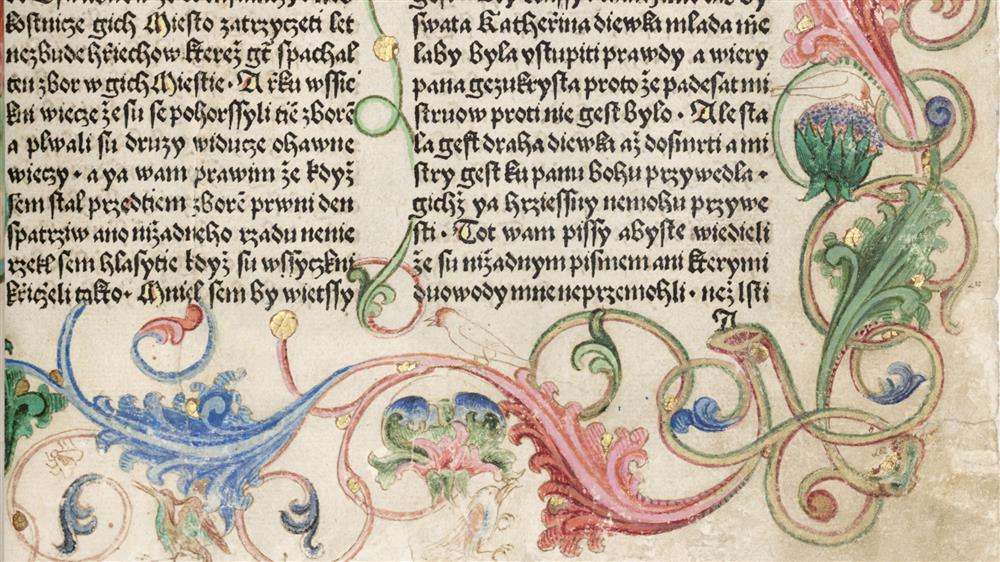 kostnicze gich Miesto zatrzyczeti let
nezbude hřiechow kterež gt̃ spachal
ten zbor w gich Miestie · A řku wssie
kni wiecze že su se pohorssyli tiē zborē
a plwali su druzy widucze ohawne
wieczy · a ya wam prawim že když
sem stal przedtiem zborē prwni den
spatrziw ano nižadneho rzadu nenie
rzekl sem hlasytie když su wssyczkni
křiczeli takto · Mniel sem by wietssy
swata Katheřina diewka mlada nīe
laby byla vstupiti prawdy a wiery
pana gezukrysta proto že padesat mi
struow proti nie gest bylo · Ale sta
la gest draha diewka až dosmrti a mi
stry gest ku panu bohu przywedla ·
gichž ya hrziessny nemohu przywe
sti · Tot wam pissy abyste wiedieli
že su nižadnym pismem ani kterymi
duowody mne neprzemohli · než lsti